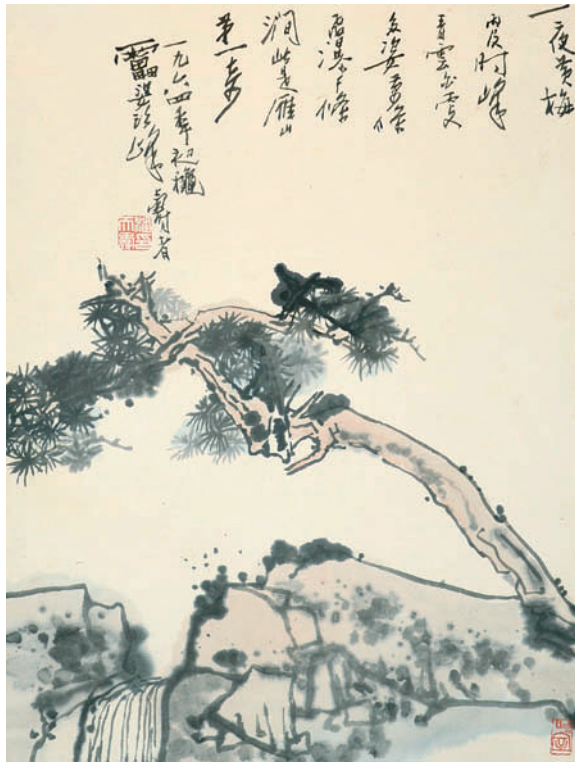 一夜黄梅
雨後时峰
青雲白更
多姿萬條
飛瀑千條
澗此是雁山
第一奇
一九六四年初
雷婆頭峰壽者